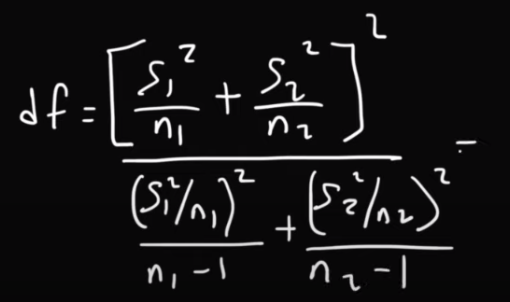 df = [S₁²/n₁ + S₂²/n₂]² =
(S₁²/n₁)²/(n₁ - 1) + (S₂²/n₂)²/(n₂ - 1)